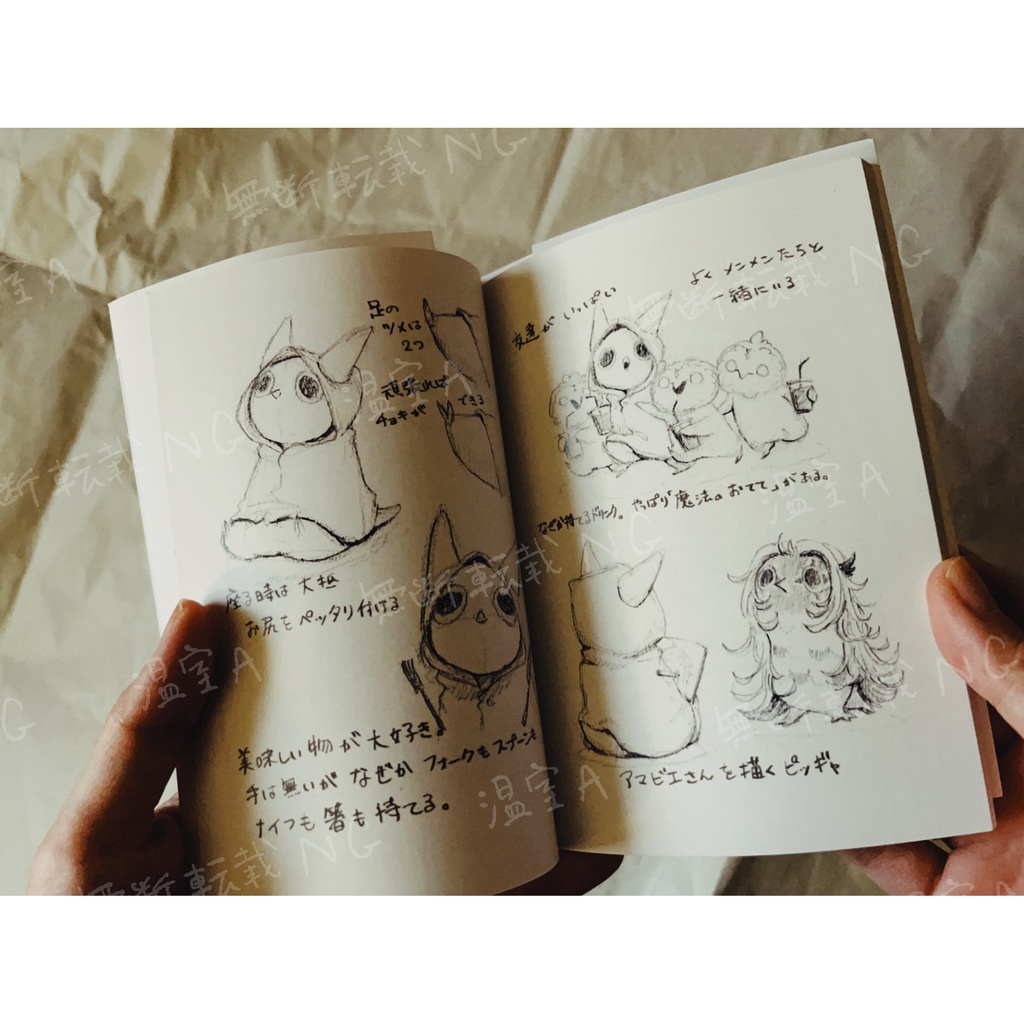 足の
ツメは
2つ
頑張れば
チョキが できる
座る時は 大抵
お尻をペッタリ付ける
美味しい物が大好き。
手は無いが なぜか フォークもスプーンも
ナイフも 箸も 持てる。
友達が いっぱい
よく メンメンたちと
一緒にいる
なぜか持てるドリンク。やっぱり「魔法のおてて」がある。
アマビエさんを描くピッギャ
無断転載 NG
温室A
無断転載 NG
温室A
無断転載 NG
温室A
断転載 NG
無断転載 NG
温室A
無断転載 NG
温室A
無断転載 NG